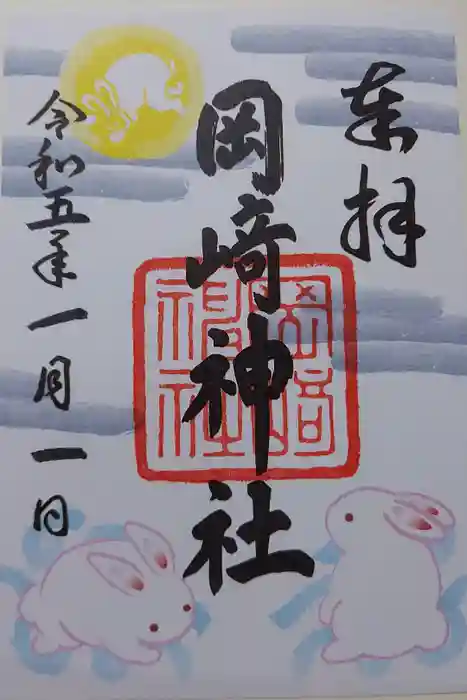 奉拝
岡崎神社
岡崎
神社
令和五年一月一日